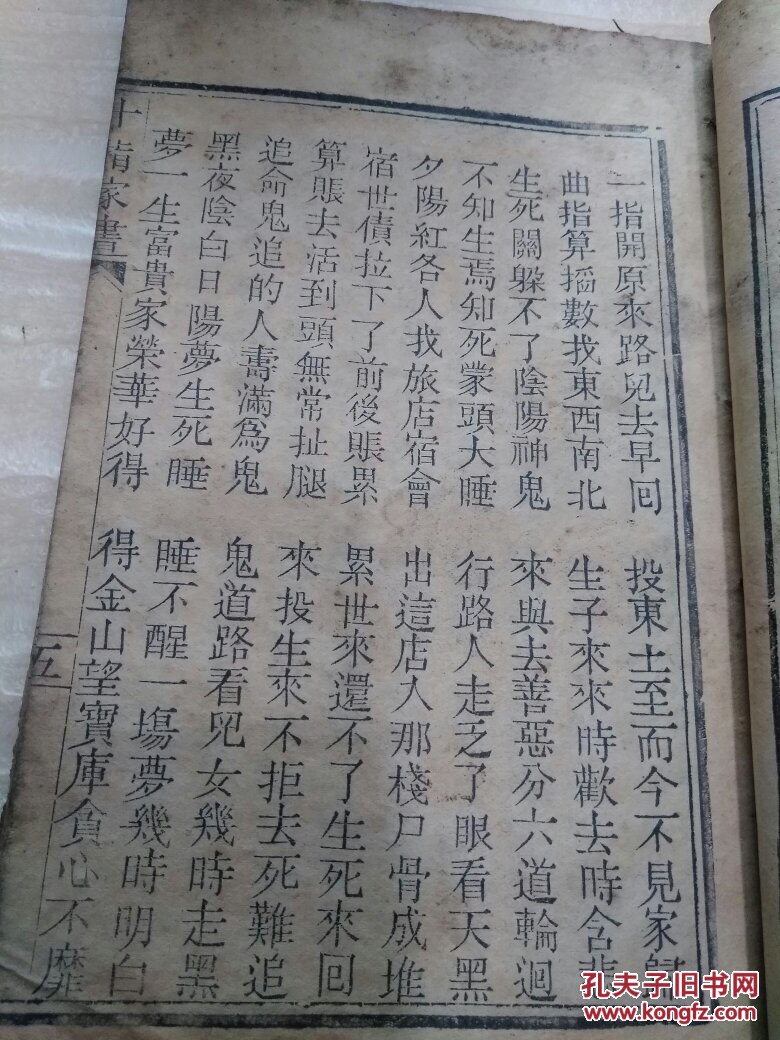 一指開原來路兒去早回　投東土至而今不見家
曲指算搯數找東西南北　生子來來時歡去時含悲
生死關躲不了陰陽神鬼　來與去善惡分六道輪迴
不知生焉知死蒙頭大睡　行路人走乏了眼看天黑
夕陽紅各人找旅店宿會　出這店入那棧尸骨成堆
宿世債拉下了前後賬累　累世來還不了生死來回
算賬去活到頭無常扯腿　來投生來不拒去死難追
追命鬼追的人壽滿爲鬼　鬼道路看兒女幾時走黑
黑夜陰白日陽夢生死睡　睡不醒一塲夢幾時明白
夢一生富貴家榮華好得　得金山望寶庫貪心不靡
十指家書
五
孔夫子旧书网
www.kongfz.com